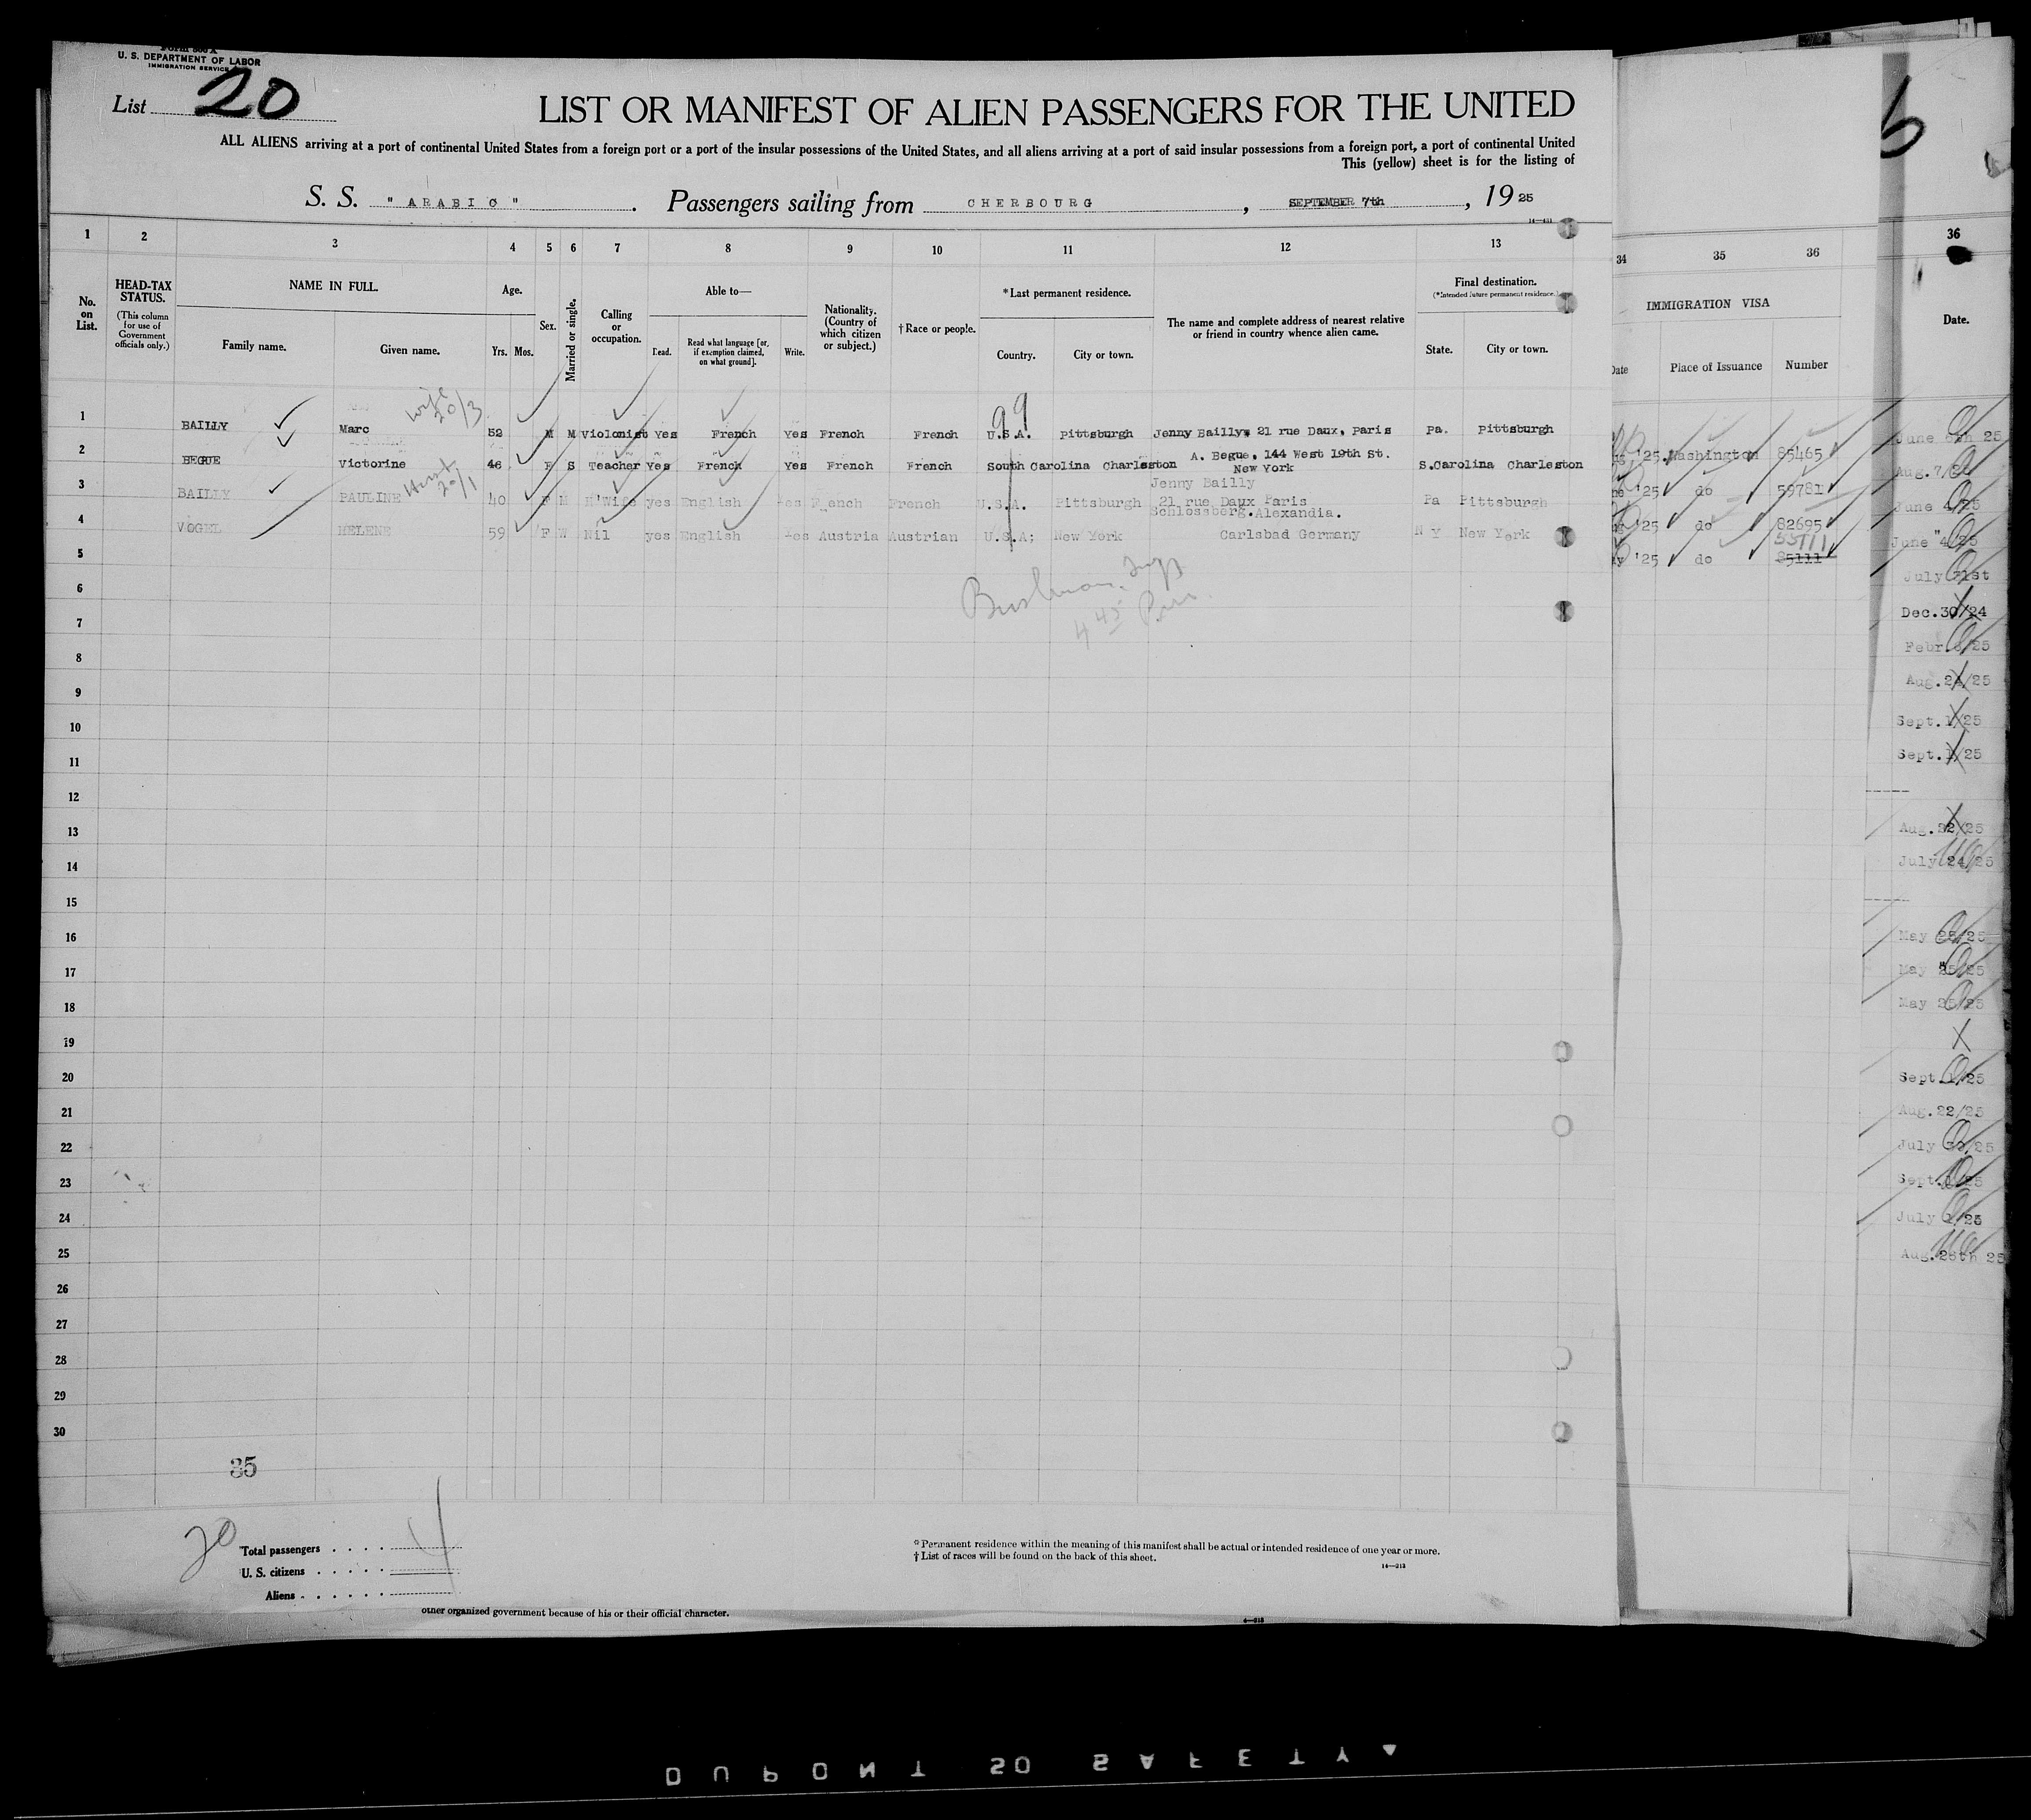 Form 500 A
U. S. DEPARTMENT OF LABOR
IMMIGRATION SERVICE
List 20
LIST OR MANIFEST OF ALIEN PASSENGERS FOR THE UNITED
ALL ALIENS arriving at a port of continental United States from a foreign port or a port of the insular possessions of the United States, and all aliens arriving at a port of said insular possessions from a foreign port, a port of continental United
This (yellow) sheet is for the listing of
S. S. "ARABIC". Passengers sailing from CHERBOURG, SEPTEMBER 7th, 1925
1 2 3 4 5 6 7 8 9 10 11 12 13
No. on List.
HEAD-TAX STATUS.
(This column for use of Government officials only.)
NAME IN FULL.
Family name. Given name.
Age.
Yrs. Mos.
Sex.
Married or single.
Calling or occupation.
Able to—
Read. Read what language [or, if exemption claimed, on what ground]. Write.
Nationality. (Country of which citizen or subject.)
†Race or people.
*Last permanent residence.
Country. City or town.
The name and complete address of nearest relative or friend in country whence alien came.
Final destination.
(*Intended future permanent residence.)
State. City or town.
wife 20/3
99
1 BAILLY Marc 52 M M Violonist Yes French Yes French French U.S.A. Pittsburgh Jenny Bailly, 21 rue Daux, Paris Pa. Pittsburgh
2 BEGUE Victorine 46 F S Teacher Yes French Yes French French South Carolina Charleston A. Begue, 144 West 19th St. New York S.Carolina Charleston
20/1
3 BAILLY PAULINE 40 F M H'Wife yes English Yes French French U.S.A. Pittsburgh Jenny Bailly 21 rue Daux Paris Pa Pittsburgh
4 VOGEL HELENE 59 F W Nil yes English Yes Austria Austrian U.S.A; New York Schlossberg.Alexandia. Carlsbad Germany N Y New York
5
6
7
8
9
10
11
12
13
14
15
16
17
18
19
20
21
22
23
24
25
26
27
28
29
30
35
20
Total passengers 4
U. S. citizens
Aliens
*Permanent residence within the meaning of this manifest shall be actual or intended residence of one year or more.
†List of races will be found on the back of this sheet.
14—213
other organized government because of his or their official character.
34 35 36
IMMIGRATION VISA
Date Place of Issuance Number
'25 Washington 85465
'25 do 59781
'25 do 82695
55111
'25 do 85111
6
36
Date.
June 5th 25
Aug. 7/25
June 4/25
June "4/25
July 31st
Dec.30/24
Febr. /25
Aug.24/25
Sept.1/25
Sept.1/25
Aug.22/25
July 24/25
May 25/25
May 25/25
May 25/25
X
Sept.1/25
Aug.22/25
July 30/25
Sept. /25
July 1/25
Aug.25th 25
DUPONT SO SAFETY